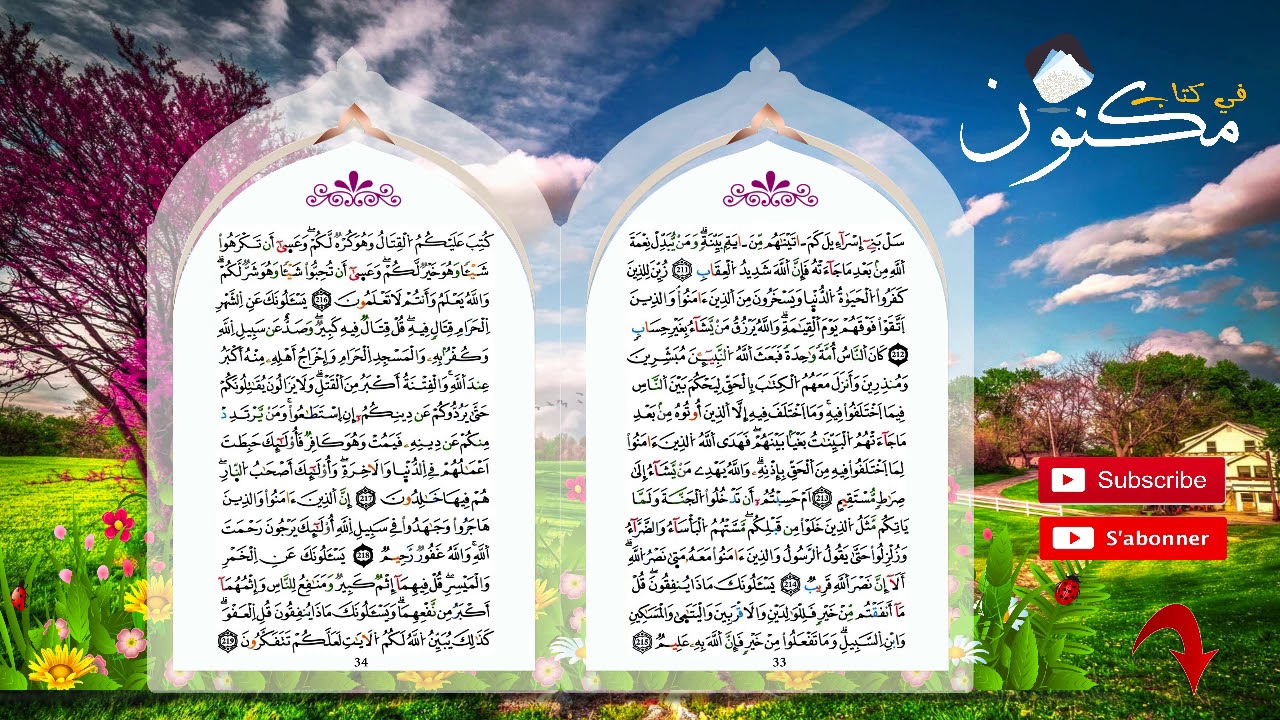 في كتاب
مكنون
سَلْ بَنِےٓ إِسْرَآءِيلَ كَمَ ـ اتَيْنَٰهُم مِّنَ ـ ايَةِۢ بَيِّنَةٖۖ وَمَنْ يُّبَدِّلْ نِعْمَةَ
اَ۬للَّهِ مِنۢ بَعْدِ مَا جَآءَتْهُ فَإِنَّ اَ۬للَّهَ شَدِيدُ اُ۬لْعِقَابِ 211 زُيِّنَ لِلذِينَ
كَفَرُواْ اُ۬لْحَيَوٰةُ اُ۬لدُّنْي۪ا وَيَسْخَرُونَ مِنَ اَ۬لذِينَ ءَامَنُواْۖ وَالذِينَ
اَ۪تَّقَوْاْ فَوْقَهُمْ يَوْمَ اَ۬لْقِيَٰمَةِۖ وَاللَّهُ يَرْزُقُ مَنْ يَّشَآءُ بِغَيْرِ حِسَابٖ
212 كَانَ اَ۬لنَّاسُ أُمَّةٗ وَٰحِدَةٗ فَبَعَثَ اَ۬للَّهُ اُ۬لنَّبِيٓـِٕۧنَ مُبَشِّرِينَ
وَمُنذِرِينَ وَأَنزَلَ مَعَهُمُ اُ۬لْكِتَٰبَ بِالْحَقِّ لِيَحْكُمَ بَيْنَ اَ۬لنَّاسِ
فِيمَا اَ۪خْتَلَفُواْ فِيهِۖ وَمَا اَ۪خْتَلَفَ فِيهِ إِلَّا اَ۬لذِينَ أُوتُوهُ مِنۢ بَعْدِ
مَا جَآءَتْهُمُ اُ۬لْبَيِّنَٰتُ بَغْياَۢ بَيْنَهُمْۖ فَهَدَى اَ۬للَّهُ اُ۬لذِينَ ءَامَنُواْ
لِمَا اَ۪خْتَلَفُواْ فِيهِ مِنَ اَ۬لْحَقِّ بِإِذْنِهِۦۖ وَاللَّهُ يَهْدِے مَنْ يَّشَآءُ إِلَىٰ
صِرَٰطٖ مُّسْتَقِيمٍ 213 اَمْ حَسِبْتُمُۥٓ أَن تَدْخُلُواْ اُ۬لْجَنَّةَ وَلَمَّا
يَاتِكُم مَّثَلُ اُ۬لذِينَ خَلَوْاْ مِن قَبْلِكُمۖ مَّسَّتْهُمُ اُ۬لْبَأْسَآءُ وَالضَّرَّآءُ
وَزُلْزِلُواْ حَتَّىٰ يَقُولُ اُ۬لرَّسُولُ وَالذِينَ ءَامَنُواْ مَعَهُۥ مَت۪ىٰ نَصْرُ اُ۬للَّهِۖ
أَلَآ إِنَّ نَصْرَ اَ۬للَّهِ قَرِيبٞ 214 يَسْـَٔلُونَكَ مَاذَا يُنفِقُونَۖ قُلْ
مَآ أَنفَقْتُم مِّنْ خَيْرٖ فَلِلْوَٰلِدَيْنِ وَالَاقْرَبِينَ وَالْيَتَٰم۪ىٰ وَالْمَسَٰكِينِ
وَابْنِ اِ۬لسَّبِيلِۖ وَمَا تَفْعَلُواْ مِنْ خَيْرٖ فَإِنَّ اَ۬للَّهَ بِهِۦ عَلِيمٞ 215
33
كُتِبَ عَلَيْكُمُ اُ۬لْقِتَالُ وَهُوَ كُرْهٞ لَّكُمْۖ وَعَس۪ىٰٓ أَن تَكْرَهُواْ
شَيْـٔاٗ وَهُوَ خَيْرٞ لَّكُمْۖ وَعَس۪ىٰٓ أَن تُحِبُّواْ شَيْـٔاٗ وَهُوَ شَرّٞ لَّكُمْۖ
وَاللَّهُ يَعْلَمُ وَأَنتُمْ لَا تَعْلَمُونَ 216 يَسْـَٔلُونَكَ عَنِ اِ۬لشَّهْرِ
اِ۬لْحَرَامِ قِتَالٖ فِيهِۖ قُلْ قِتَالٞ فِيهِ كَبِيرٞۖ وَصَدٌّ عَن سَبِيلِ اِ۬للَّهِ
وَكُفْرُۢ بِهِۦ وَالْمَسْجِدِ اِ۬لْحَرَامِ وَإِخْرَاجُ أَهْلِهِۦ مِنْهُ أَكْبَرُ
عِندَ اَ۬للَّهِۖ وَالْفِتْنَةُ أَكْبَرُ مِنَ اَ۬لْقَتْلِۖ وَلَا يَزَالُونَ يُقَٰتِلُونَكُمْ
حَتَّىٰ يَرُدُّوكُمْ عَن دِينِكُمُۥٓ إِنِ اِ۪سْتَطَٰعُواْۖ وَمَنْ يَّرْتَدِدْ
مِنكُمْ عَن دِينِهِۦ فَيَمُتْ وَهُوَ كَافِرٞ فَأُوْلَٰٓئِكَ حَبِطَتَ
اَعْمَٰلُهُمْ فِے اِ۬لدُّنْي۪ا وَالَاخِرَةِۖ وَأُوْلَٰٓئِكَ أَصْحَٰبُ اُ۬لنّ۪ارِۖ
هُمْ فِيهَا خَٰلِدُونَ 217 إِنَّ اَ۬لذِينَ ءَامَنُواْ وَالذِينَ
هَاجَرُواْ وَجَٰهَدُواْ فِے سَبِيلِ اِ۬للَّهِ أُوْلَٰٓئِكَ يَرْجُونَ رَحْمَتَ
اَ۬للَّهِۖ وَاللَّهُ غَفُورٞ رَّحِيمٞ 218 يَسْـَٔلُونَكَ عَنِ اِ۬لْخَمْرِ
وَالْمَيْسِرِۖ قُلْ فِيهِمَآ إِثْمٞ كَبِيرٞ وَمَنَٰفِعُ لِلنَّاسِ وَإِثْمُهُمَآ
أَكْبَرُ مِن نَّفْعِهِمَاۖ وَيَسْـَٔلُونَكَ مَاذَا يُنفِقُونَ قُلِ اِ۬لْعَفْوَۖ
كَذَٰلِكَ يُبَيِّنُ اُ۬للَّهُ لَكُمُ اُ۬لَايَٰتِ لَعَلَّكُمْ تَتَفَكَّرُونَ 219
34
Subscribe
S'abonner